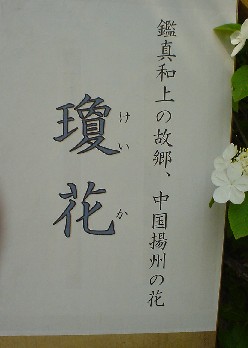 鑑真和上の故郷、中国揚州の花
瓊花
けいか